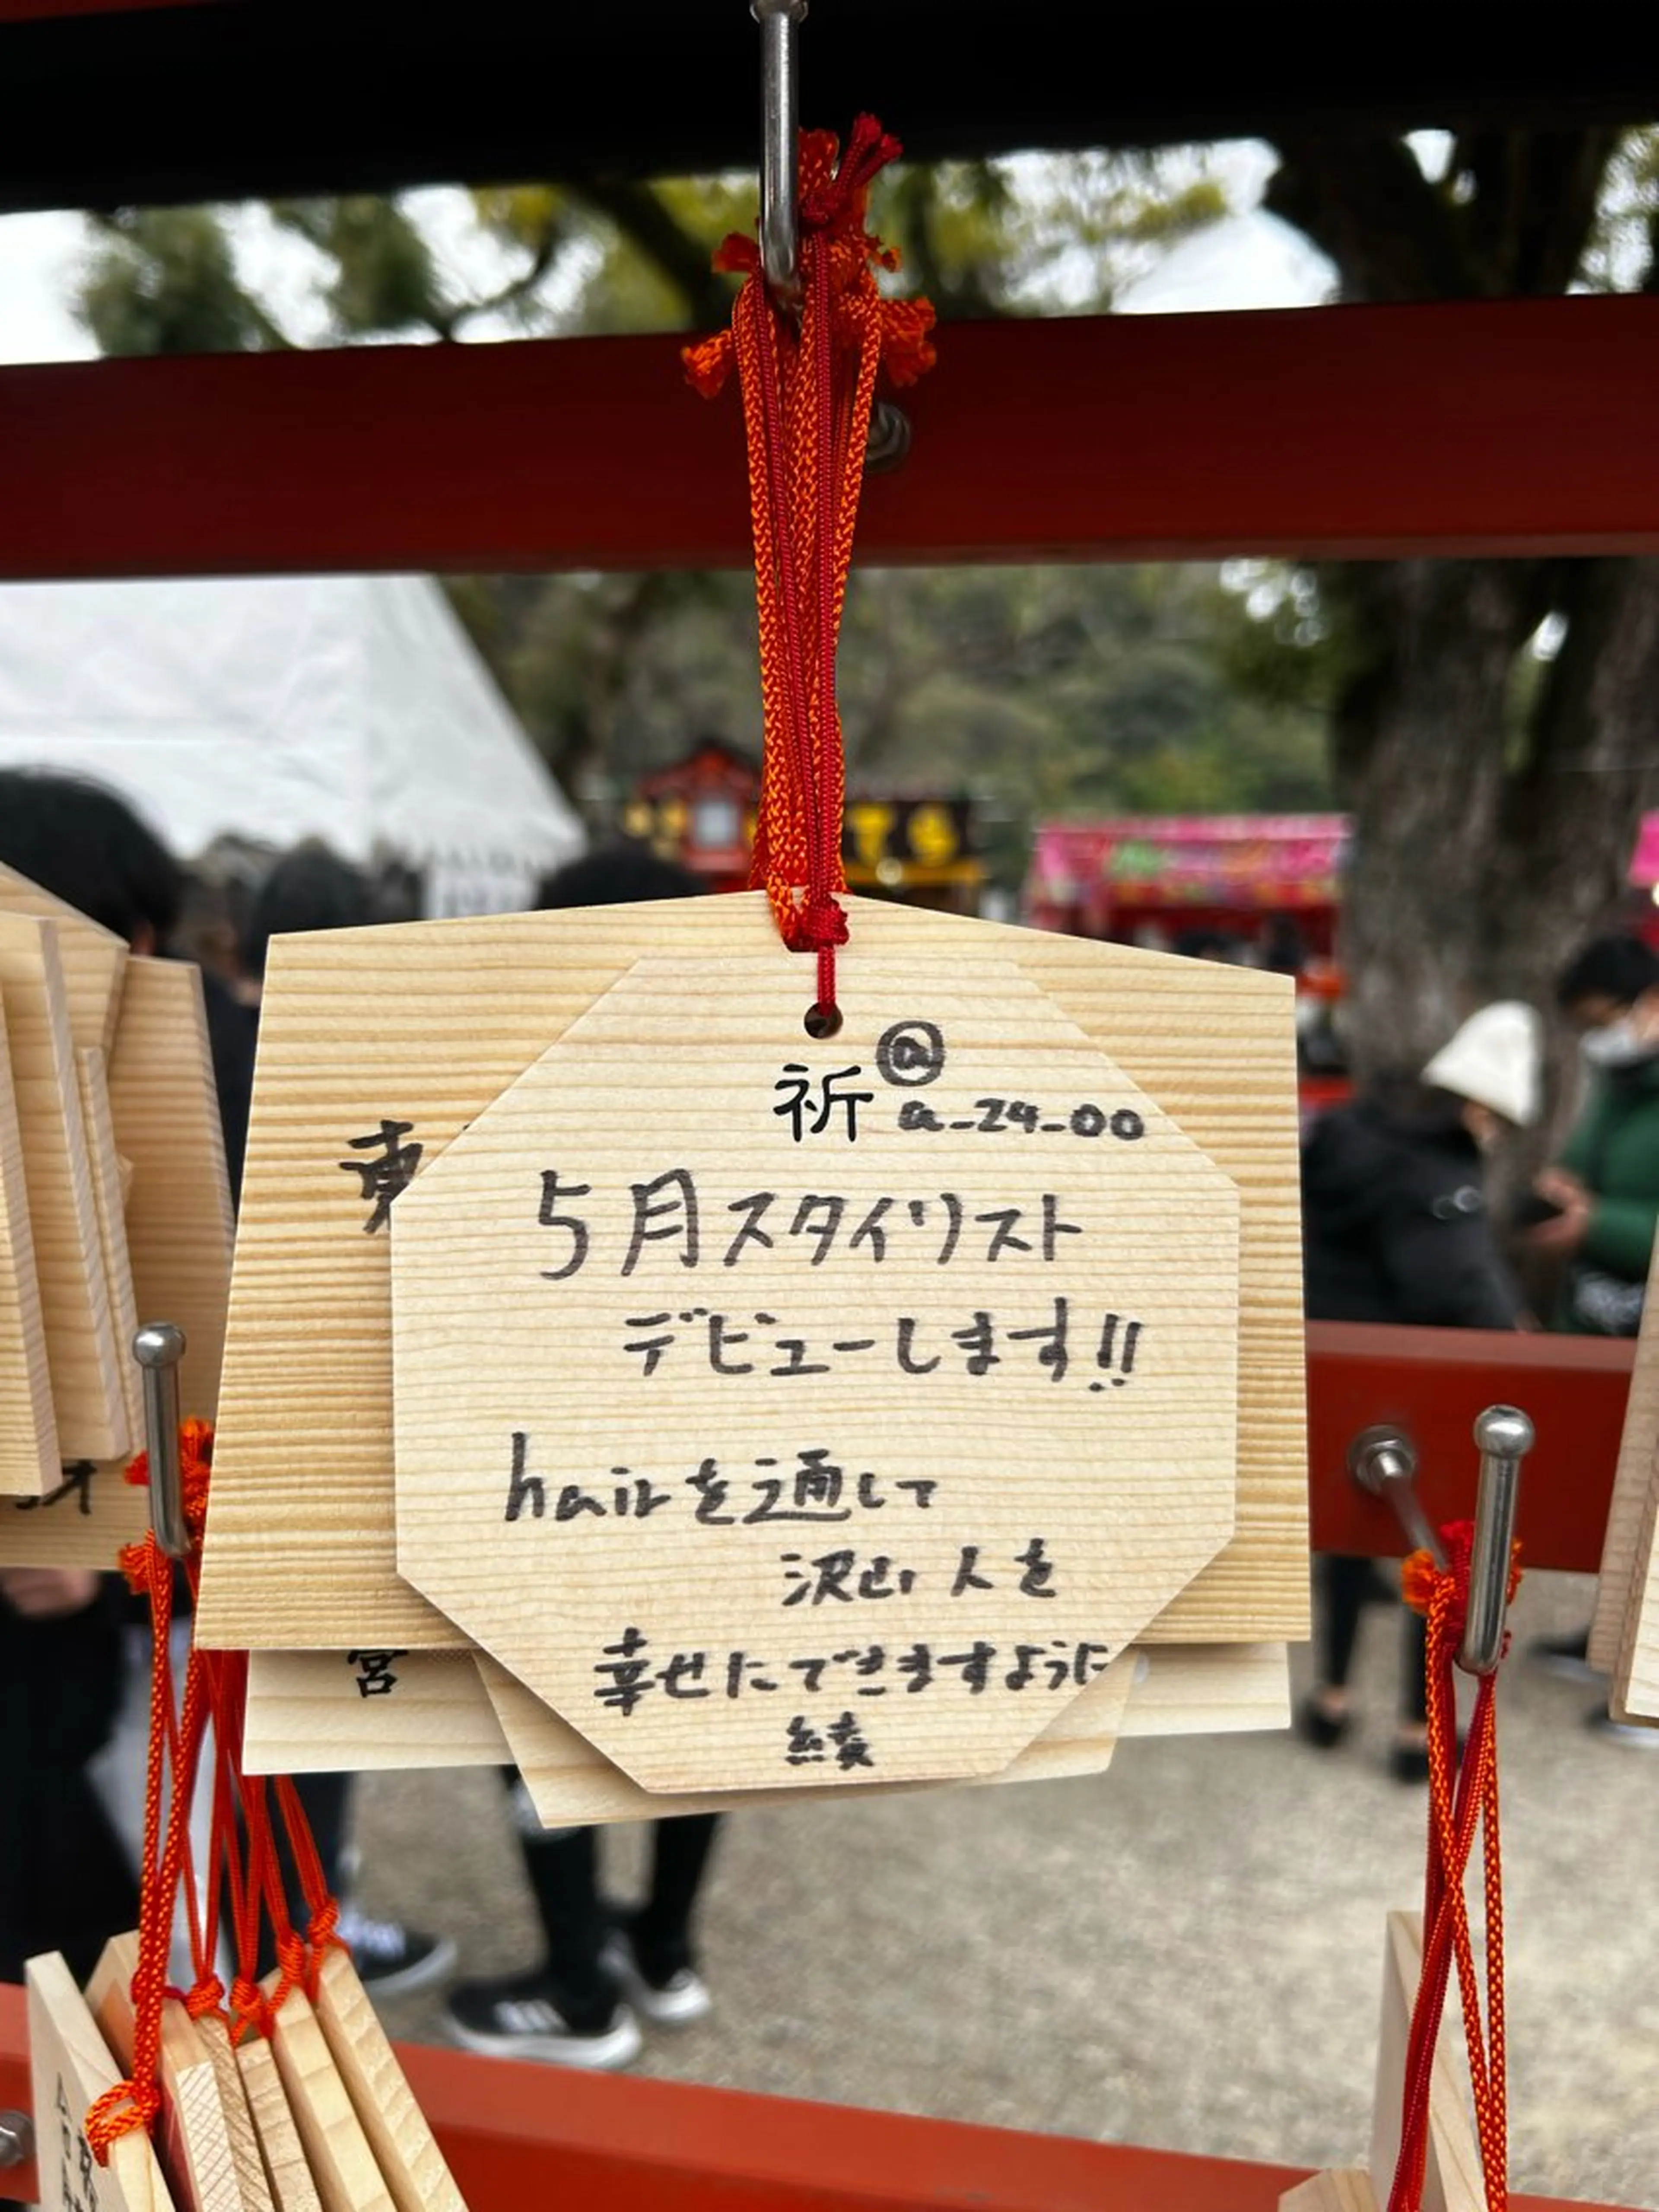 祈
@
a_24_00
5月スタイリスト
デビューします!!
hairを通して
沢山人を
幸せにできますように
綾
東
宮